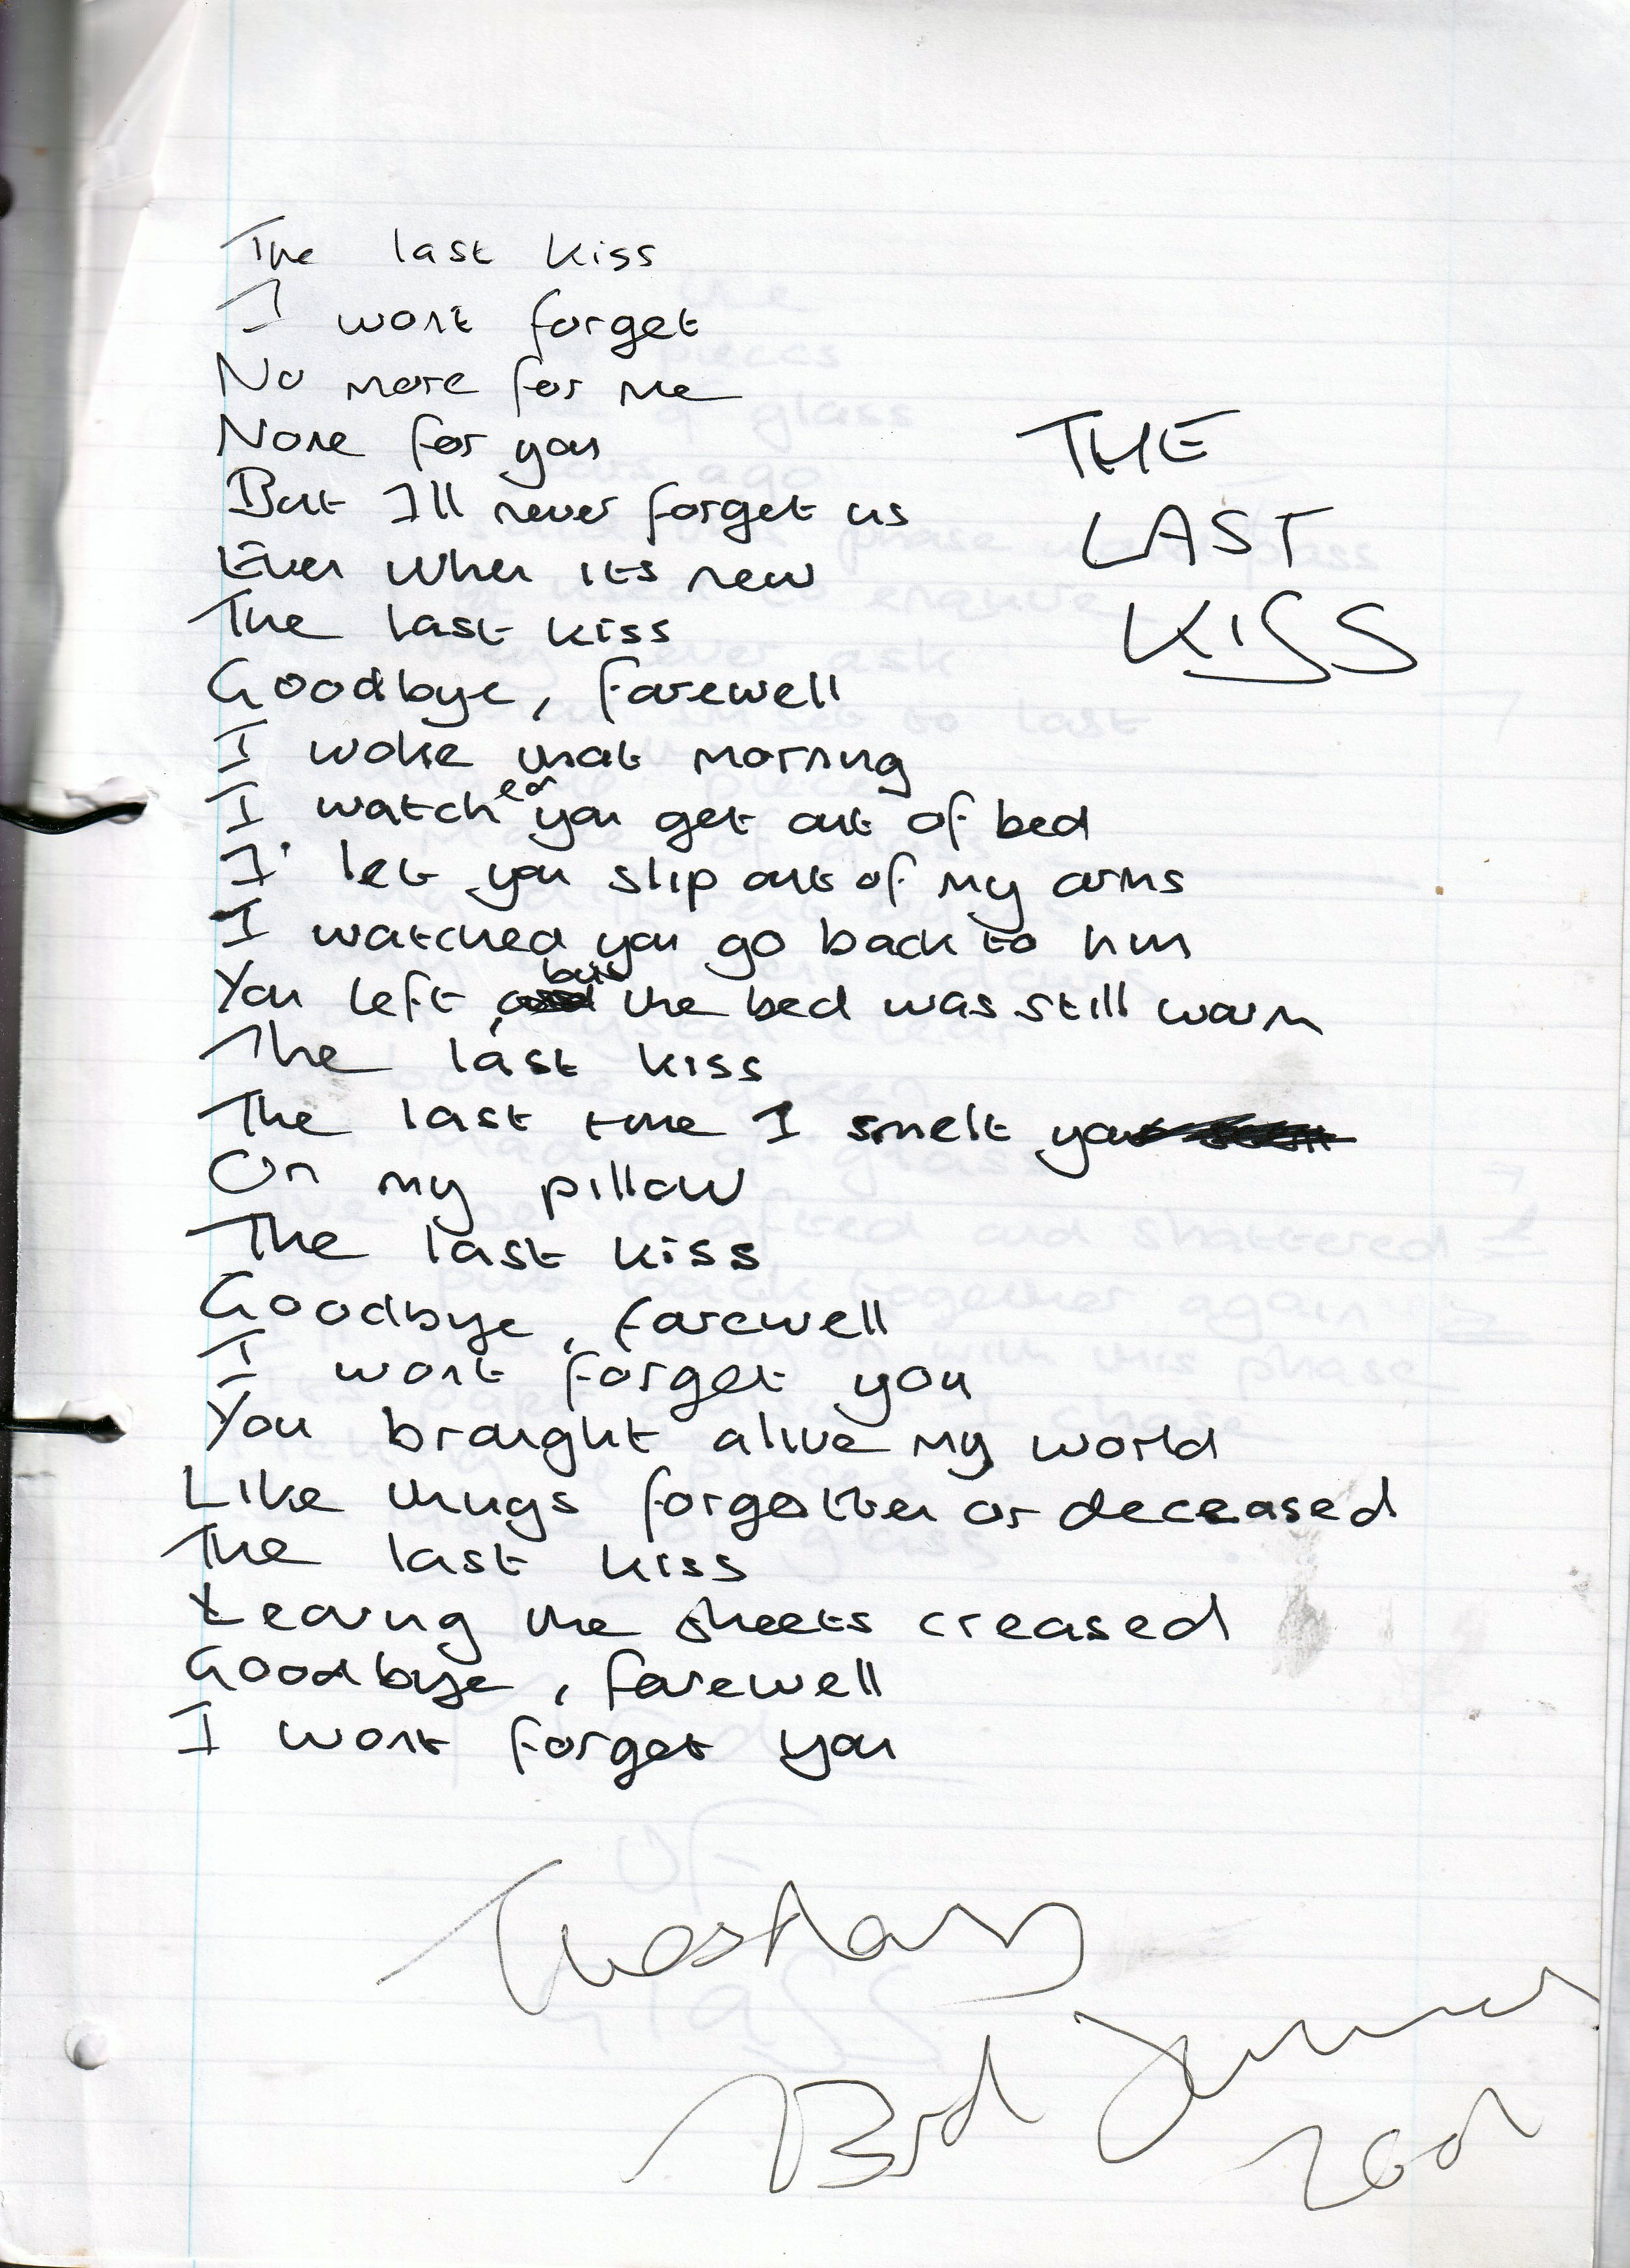 The last kiss
I wont forget
No more for me
None for you
But I'll never forget us
Even when its new
The last kiss
Goodbye, farewell
I woke that morning
I watched you get out of bed
I let you slip out of my arms
I watched you go back to him
You left, but the bed was still warm
The last kiss
The last time I smelt you
On my pillow
The last kiss
Goodbye, farewell
I wont forget you
You brought alive my world
Like things forgotten or deceased
The last kiss
Leaving the sheets creased
Goodbye, farewell
I wont forget you
THE
LAST
KISS
Tuesday
23rd January
2001